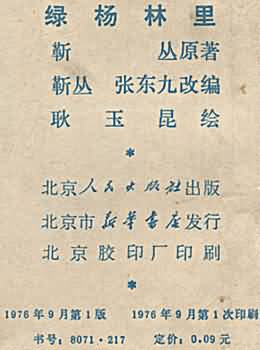 绿杨林里
靳 丛原著
靳丛 张东九改编
耿玉昆绘
*
北京人民出版社出版
北京市新华书店发行
北京胶印厂印刷
*
1976年9月第1版 1976年9月第1次印刷
书号：8071·217 定价：0.09元